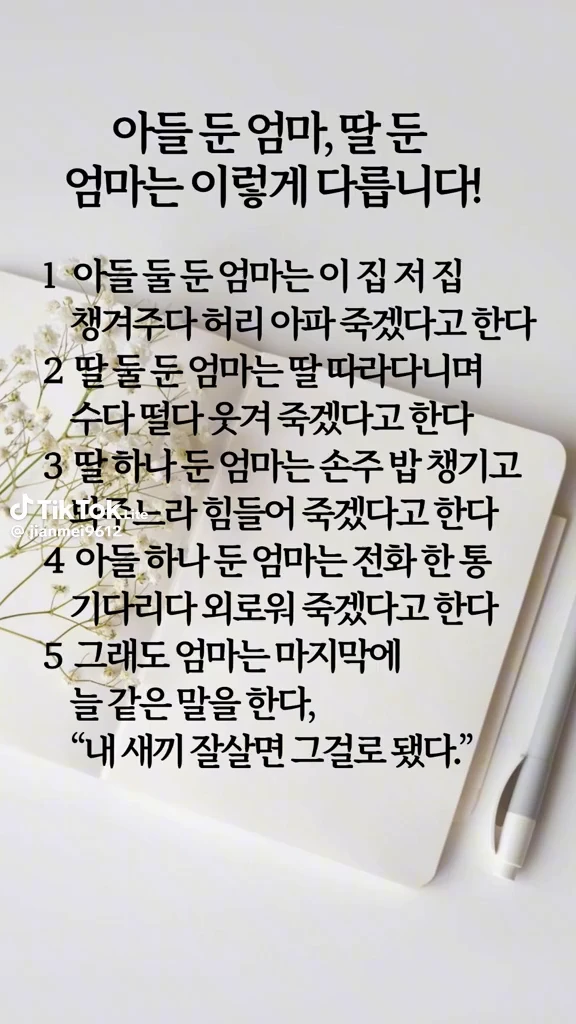 아들 둔 엄마, 딸 둔
엄마는 이렇게 다릅니다!
1 아들 둘 둔 엄마는 이 집 저 집
챙겨주다 허리 아파 죽겠다고 한다
2 딸 둘 둔 엄마는 딸 따라다니며
수다 떨다 웃겨 죽겠다고 한다
3 딸 하나 둔 엄마는 손주 밥 챙기고
TikTok
느라 힘들어 죽겠다고 한다
@jianmei9612
4 아들 하나 둔 엄마는 전화 한 통
기다리다 외로워 죽겠다고 한다
5 그래도 엄마는 마지막에
늘 같은 말을 한다,
“내 새끼 잘살면 그걸로 됐다.”